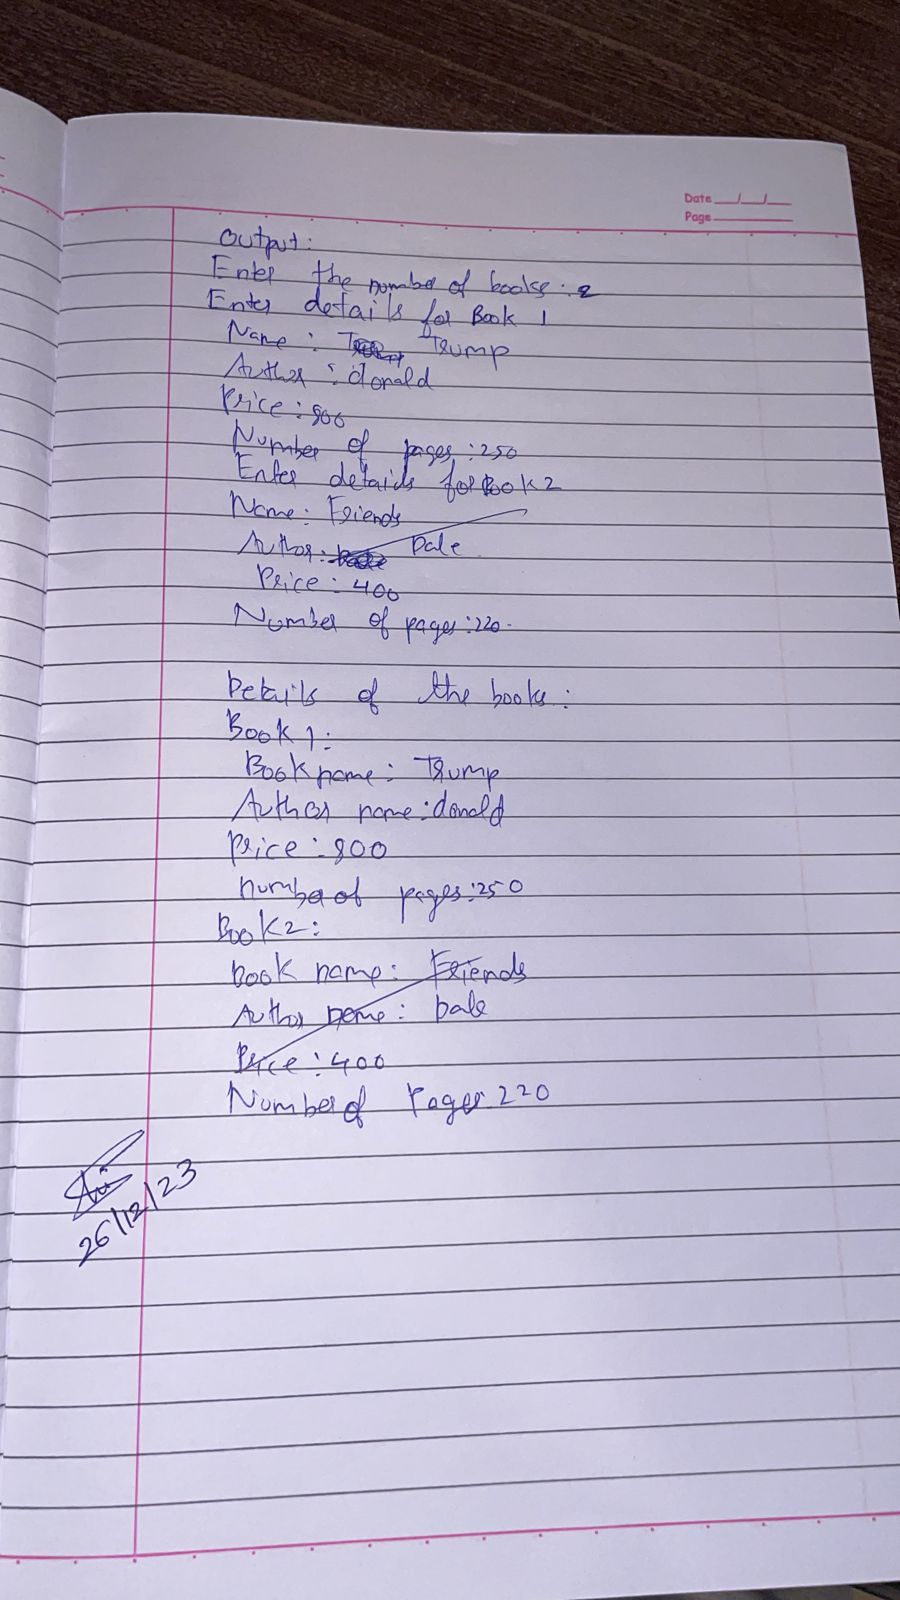 Date __/__/__
Page
Output:
Enter the number of books: 2
Enter details for Book 1
Name: Trump
Author: donald
Price: 800
Number of pages: 250
Enter details for Book 2
Name: Friends
Author: Dale
Price: 400
Number of pages: 220.
Details of the books:
Book 1:
Book name: Trump
Author name: donald
Price: 800
number of pages: 250
Book 2:
book name: Friends
Author name: Dale
Price: 400
Number of Pages 220
26/12/23